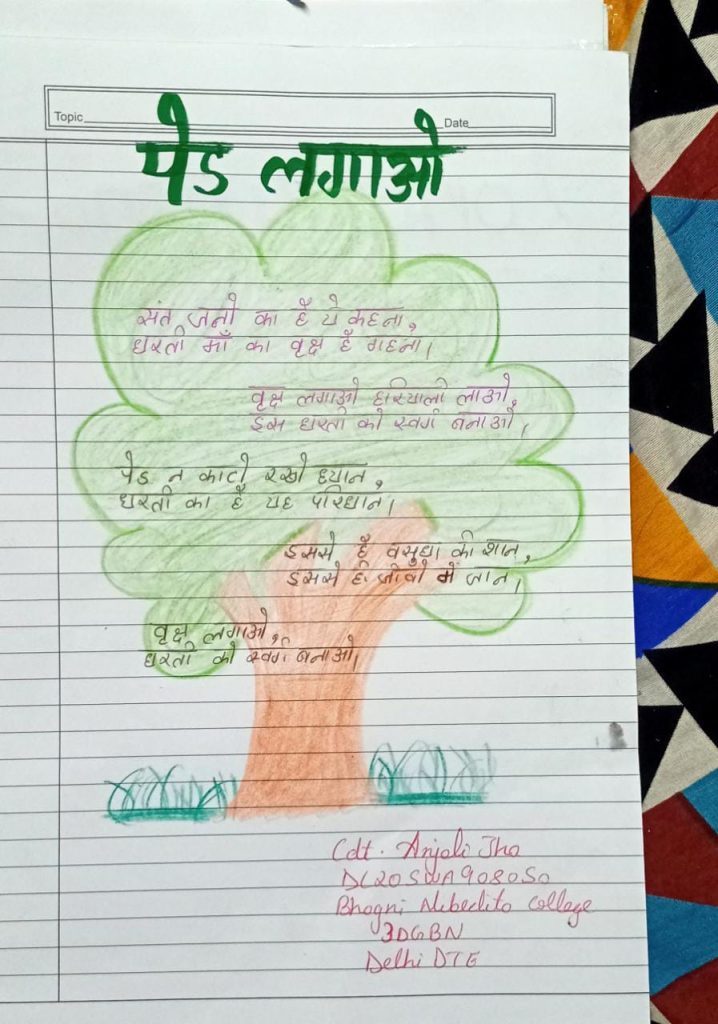 Topic
Date
पेड लगाओ
संत जनो का है ये कहना,
धरती माँ का वृक्ष है गहना।
वृक्ष लगाओ हरियाली लाओ,
इस धरती को स्वर्ग बनाओ।
पेड न काटो रखो ध्यान,
धरती का है यह परिधान।
इससे है वसुधा की शान,
इससे ही जीवो में जान।
वृक्ष लगाओ,
धरती को स्वर्ग बनाओ।
Cdt. Anjali Jha
DL20SWA908050
Bhagni Nibedita College
3DGBN
Delhi DTE